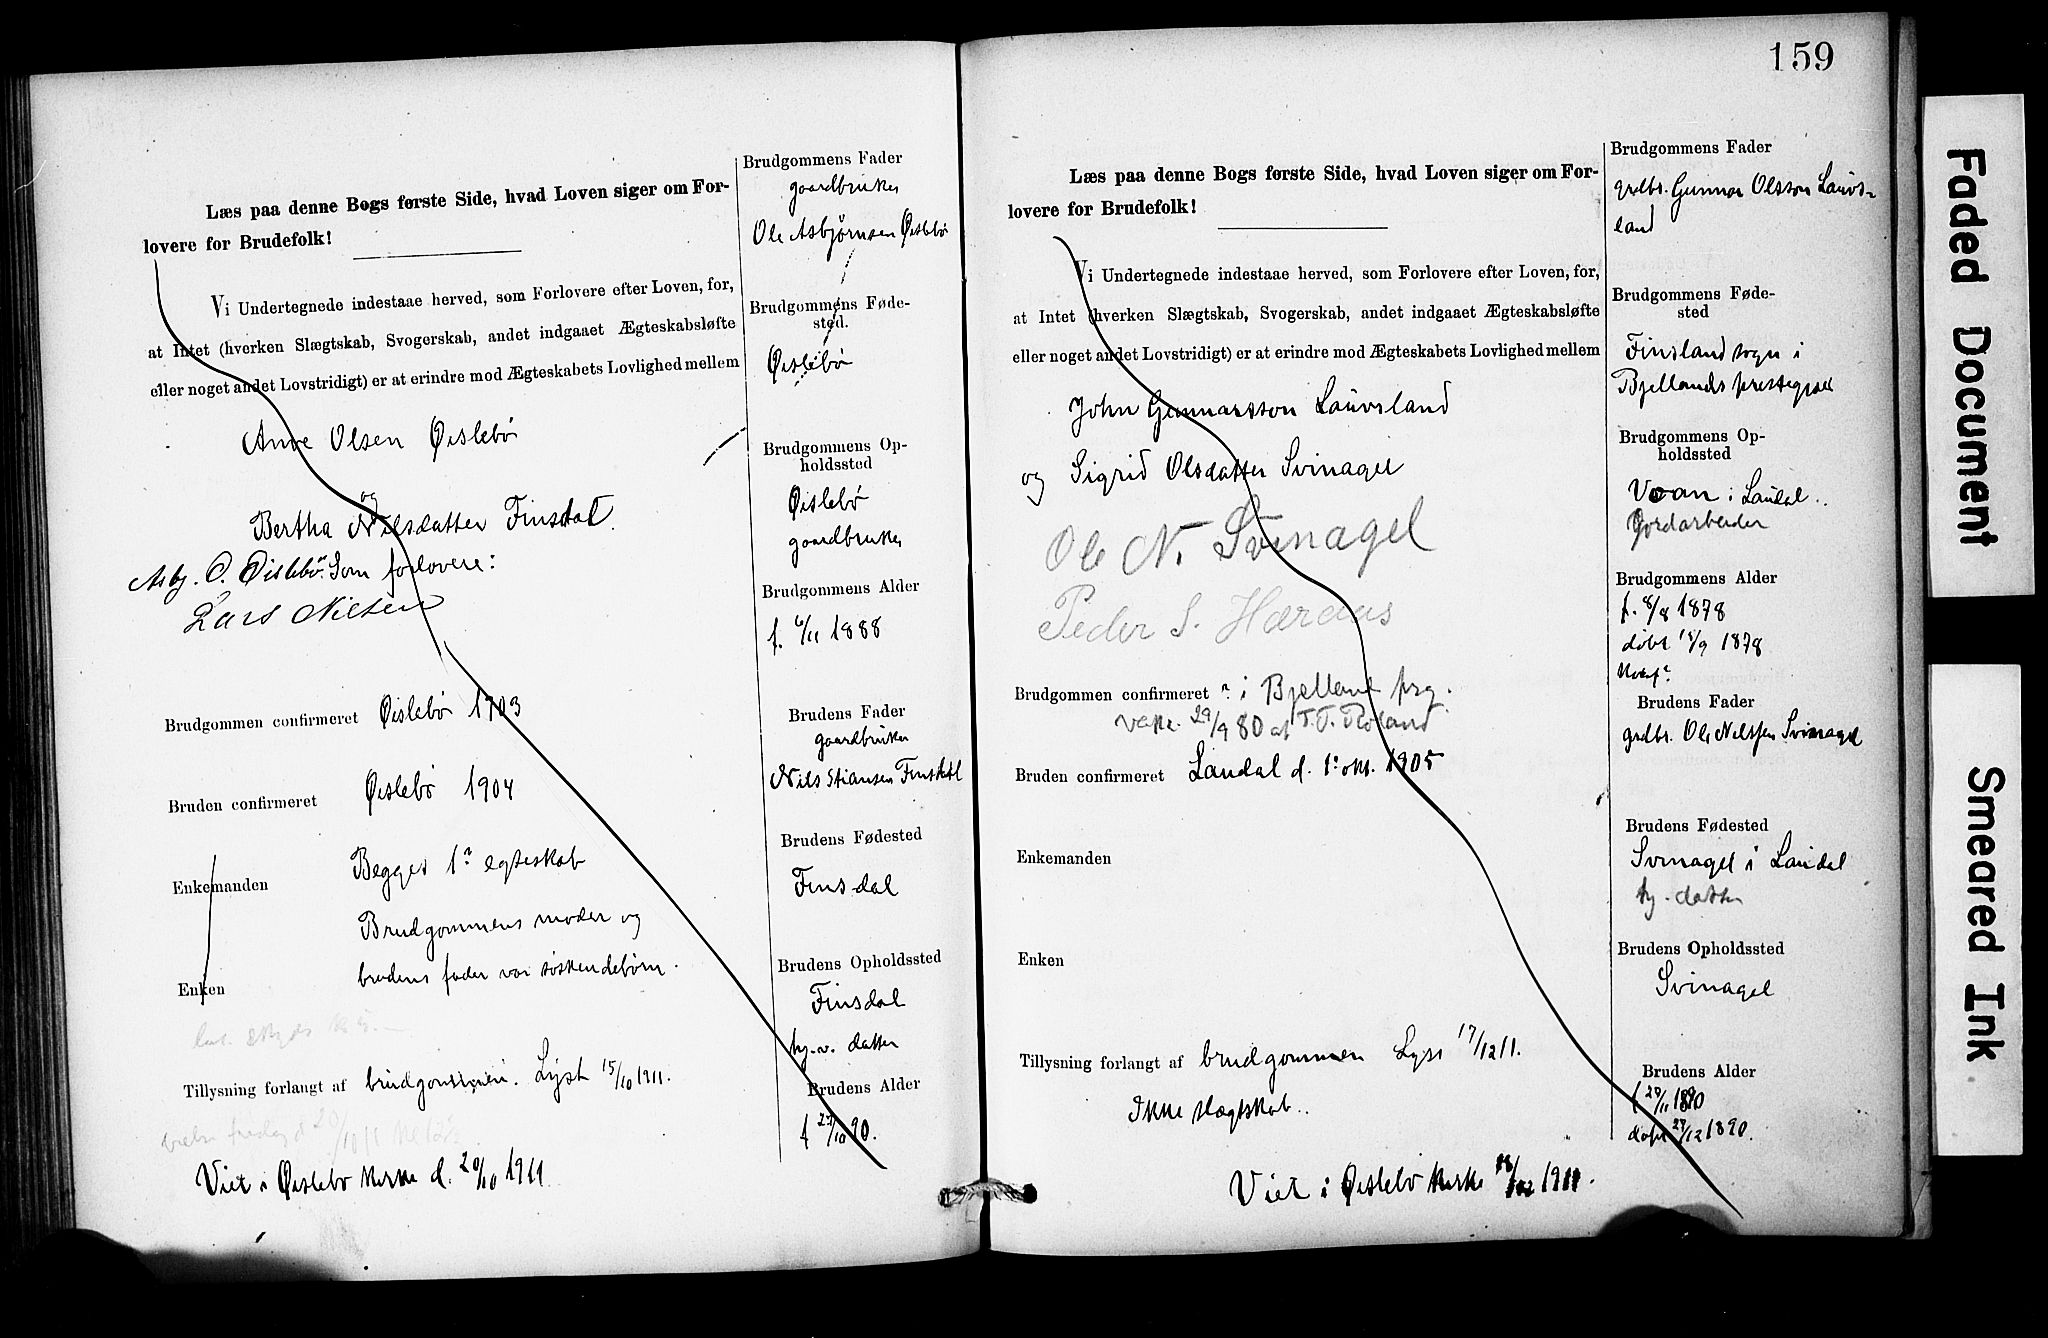 Læs paa denne Bogs første Side, hvad Loven siger om For-
lovere for Brudefolk!
Vi Undertegnede indestaae herved, som Forlovere efter Loven, for,
at Intet (hverken Slægtskab, Svogerskab, andet indgaaet Ægteskabsløfte
eller noget andet Lovstridigt) er at erindre mod Ægteskabets Lovlighed mellem
Olsen Øislebø
og
Bertha Nilsdatter Finsdal.
Asbj. O. Øislebø. Som forlovere:
Lars Nilsen
Brudgommen confirmeret Øislebø 1903
Bruden confirmeret Øislebø 1904
Enkemanden Begges 1ᵉ egteskab
Brudgommens moder og
Enken brudens fader var søskendebørn.
Tillysning forlangt af brudgommen. Lyst 15/10 1911.
Viet i Øislebø kirke d. 20/10 1911
Brudgommens Fader
gaardbruker
Ole Asbjørnsen Øislebø
Brudgommens Føde-
sted.
Øislebø
Brudgommens Op-
holdssted
Øislebø
gaardbruker
Brudgommens Alder
f. 6/11 1888
Brudens Fader
gaardbruker
Nils Stiansen Finsdal
Brudens Fødested
Finsdal
Brudens Opholdssted
Finsdal
datter
Brudens Alder
f 27/10 90.
159
Læs paa denne Bogs første Side, hvad Loven siger om For-
lovere for Brudefolk!
Vi Undertegnede indestaae herved, som Forlovere efter Loven, for,
at Intet (hverken Slægtskab, Svogerskab, andet indgaaet Ægteskabsløfte
eller noget andet Lovstridigt) er at erindre mod Ægteskabets Lovlighed mellem
John Gunnarsson Lauvsland
og Sigrid Olsdatter Svinagel
Ole N. Svinagel
Peder S. Haraas
Brudgommen confirmeret ? i Bjelland prg.
29/9 80 af T. T. Røland
Bruden confirmeret Laudal d. 1ᵉ okt. 1905
Enkemanden
Enken
Tillysning forlangt af brudgommen Lyst 17/12 11.
Ikke slægtskab.
Viet i Øislebø kirke 1911.
Brudgommens Fader
grdbr. Gunnar Olsson Lauvs-
land
Brudgommens Føde-
sted
Finsland sogn i
Bjellands prestegjæld
Brudgommens Op-
holdssted
i Laudal.
Gordarbeider
Brudgommens Alder
f. 8/8 1878
døbt 18/9 1878
Brudens Fader
grdbr. Ole Nilssen Svinagel
Brudens Fødested
Svinagel i Laudal
datter
Brudens Opholdssted
Svinagel
Brudens Alder
f 20/11 1890
døpt 27/12 1890.
Faded Document
Smeared Ink